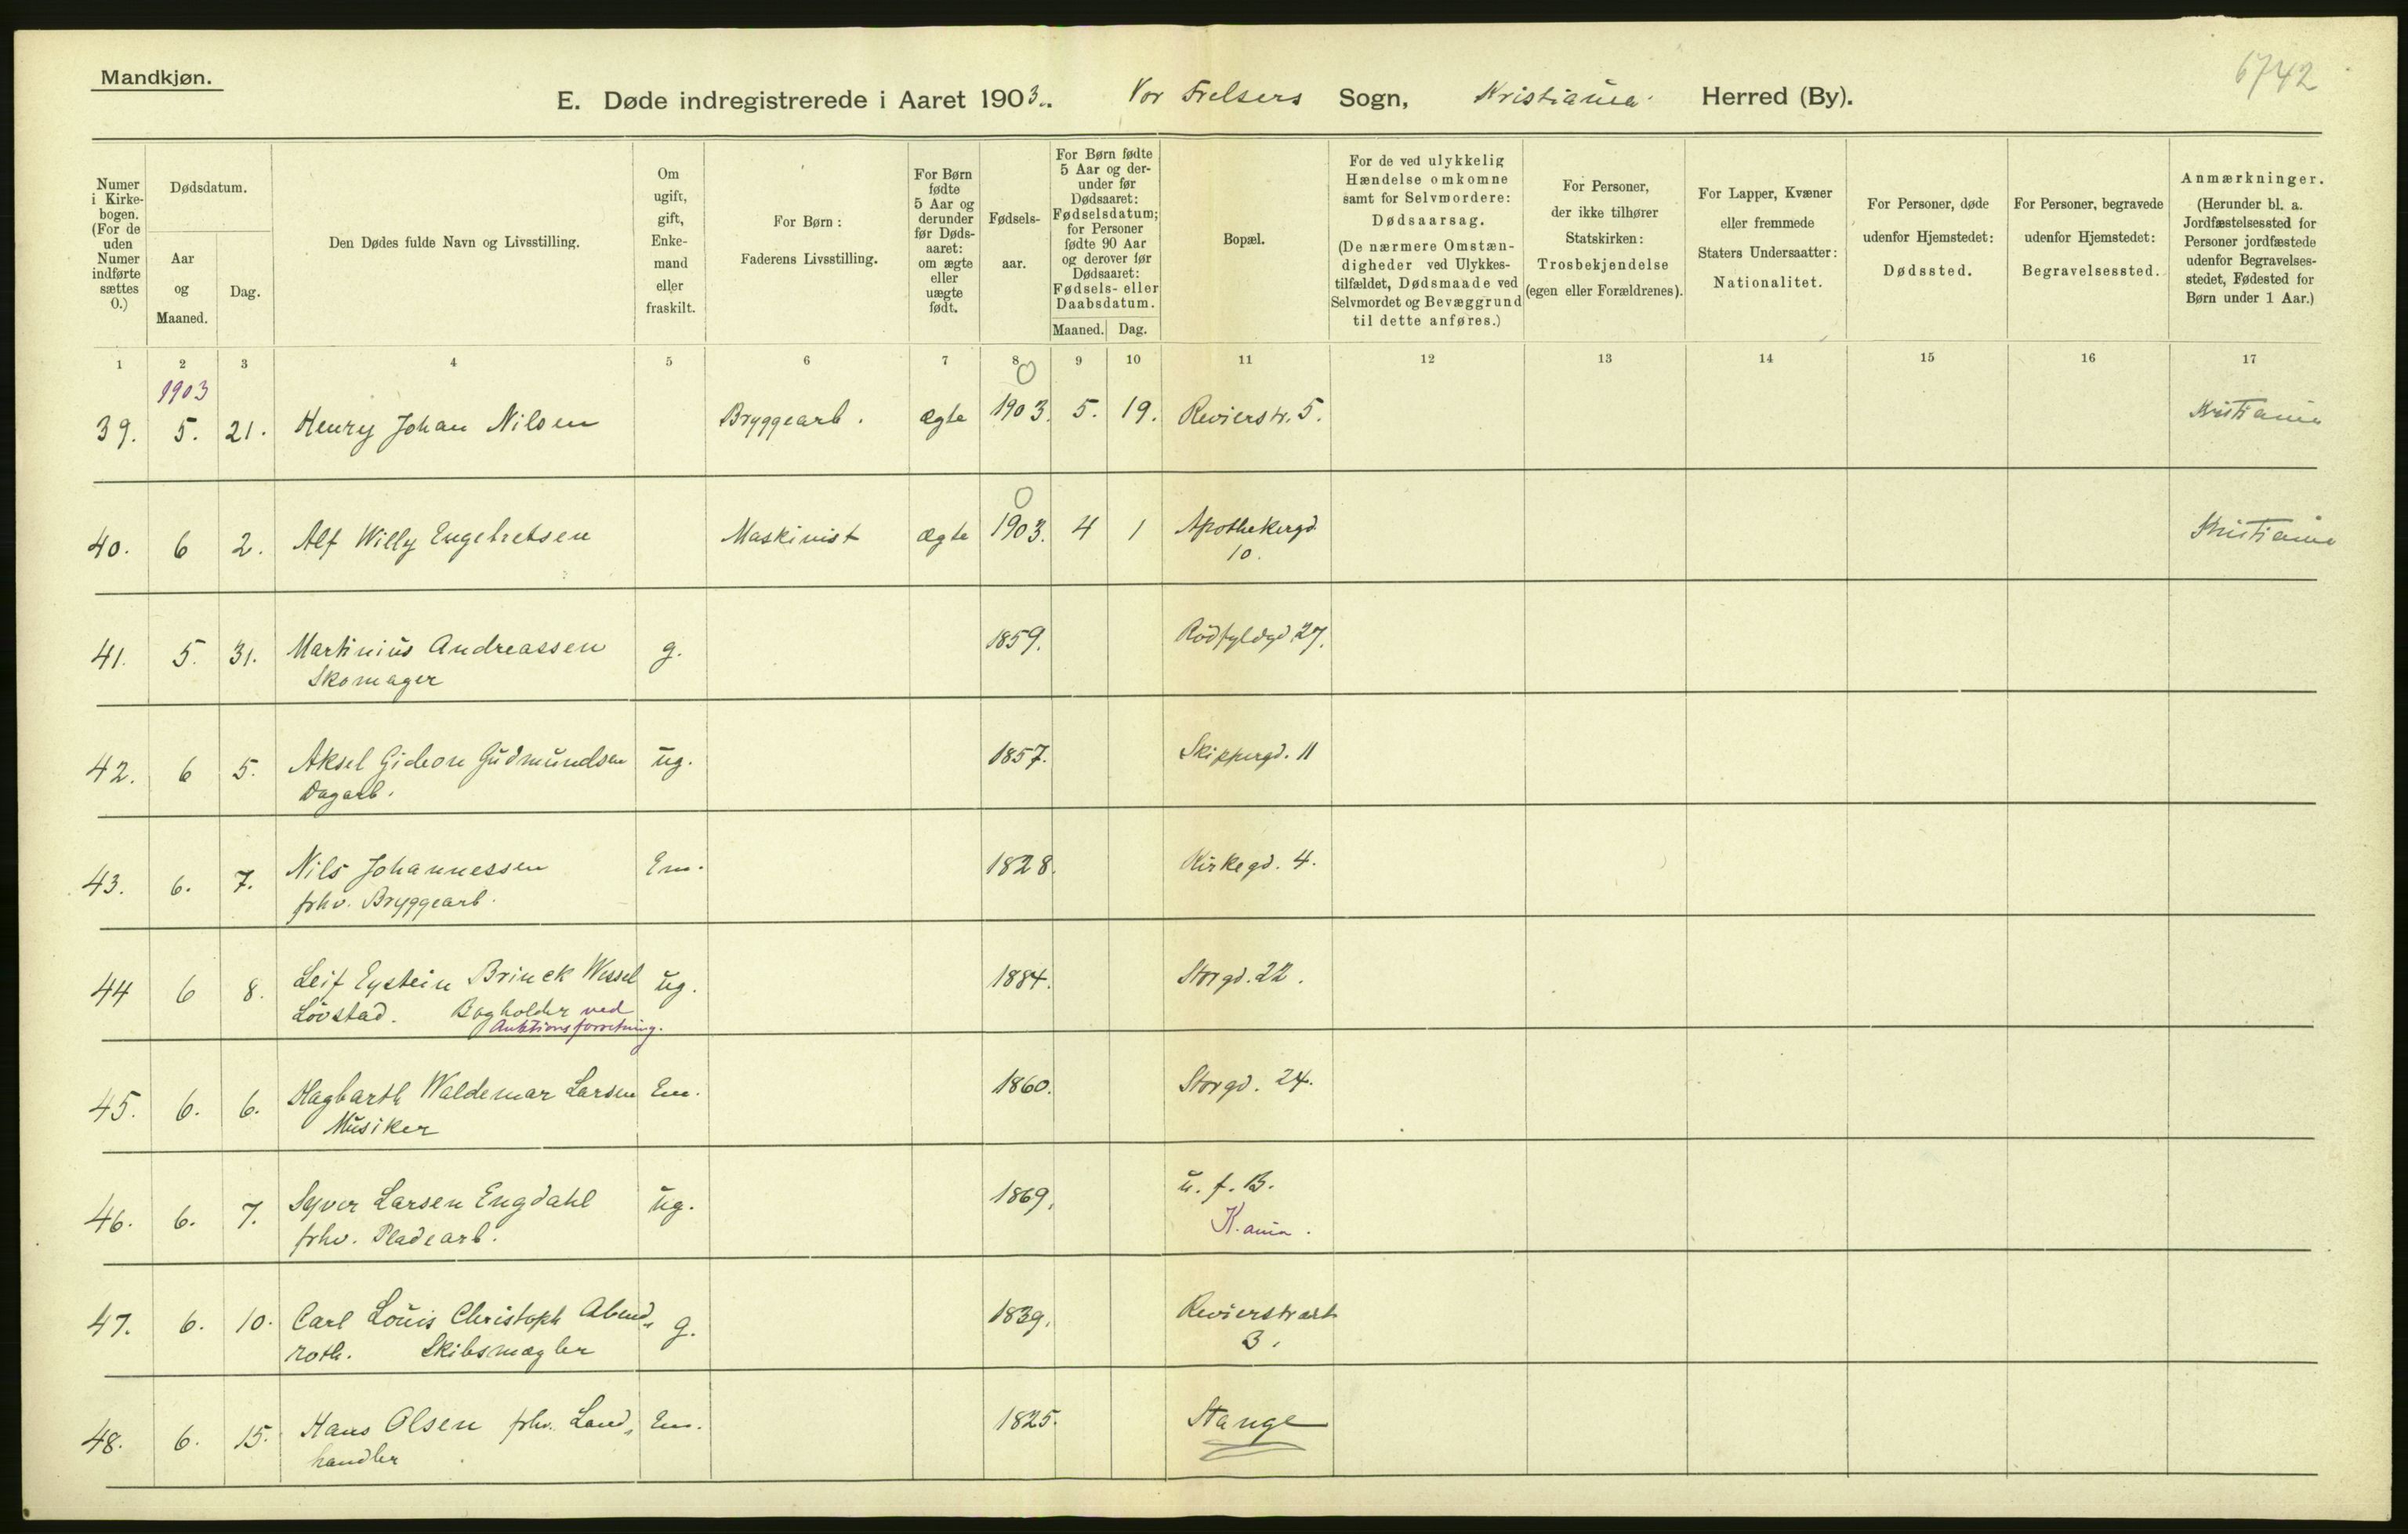 Mandkjøn.
6742
E. Døde indregistrerede i Aaret 1903. Vor Frelsers Sogn, Kristiania Herred (By).
Numer i Kirke-bogen. (For de uden Numer indførte sættes 0.)
Dødsdatum.
Aar og Maaned.
Dag.
Den Dødes fulde Navn og Livsstilling.
Om ugift, gift, Enke-mand eller fraskilt.
For Børn: Faderens Livsstilling.
For Børn fødte 5 Aar og derunder før Døds-aaret: om ægte eller uægte født.
Fødsels-aar.
For Børn fødte 5 Aar og der-under før Dødsaaret: Fødselsdatum; for Personer fødte 90 Aar og derover før Dødsaaret: Fødsels- eller Daabsdatum.
Maaned. Dag.
Bopæl.
For de ved ulykkelig Hændelse omkomne samt for Selvmordere: Dødsaarsag. (De nærmere Omstæn-digheder ved Ulykkes-tilfældet, Dødsmaade ved Selvmordet og Bevæggrund til dette anføres.)
For Personer, der ikke tilhører Statskirken: Trosbekjendelse (egen eller Forældrenes).
For Lapper, Kvæner eller fremmede Staters Undersaatter: Nationalitet.
For Personer, døde udenfor Hjemstedet: Dødssted.
For Personer, begravede udenfor Hjemstedet: Begravelsessted.
Anmærkninger. (Herunder bl. a. Jordfæstelsessted for Personer jordfæstede udenfor Begravelses-stedet, Fødested for Børn under 1 Aar.)
1 2 3 4 5 6 7 8 9 10 11 12 13 14 15 16 17
1903 0
39. 5. 21. Henry Johan Nilsen Bryggearb. ægte 1903. 5. 19. Revierstr. 5. Kristiania
0
40. 6 2. Alf Willy Engebretsen Maskinist ægte 1903. 4 1 Apothekergd. Kristiania
10.
41. 5. 31. Martinius Andreassen g. 1859. Rödfyldgd 27.
Skomager
42. 6 5. Aksel Gideon Gudmundsen ug. 1857. Skippergd. 11
Dagarb.
43. 6. 7. Nils Johannessen Em. 1828. Kirkegd. 4.
fhv. Bryggearb.
44 6 8. Leif Eystein Brinck Wessel ug. 1884. Storgd. 22.
Lövstad. Bogholder ved
Auktionsforretning.
45. 6. 6. Hagbarth Waldemar Larsen Em. 1860. Storgd. 24.
Musiker
46. 6. 7. Syver Larsen Engdahl ug. 1869. u. f. B.
fhv. Pladearb. K.ania.
47. 6. 10. Carl Louis Christoph Abend- g. 1839. Revierstræt
roth. Skibsmægler 3.
48. 6. 15. Hans Olsen fhv. Land- Em. 1825. Stange
handler